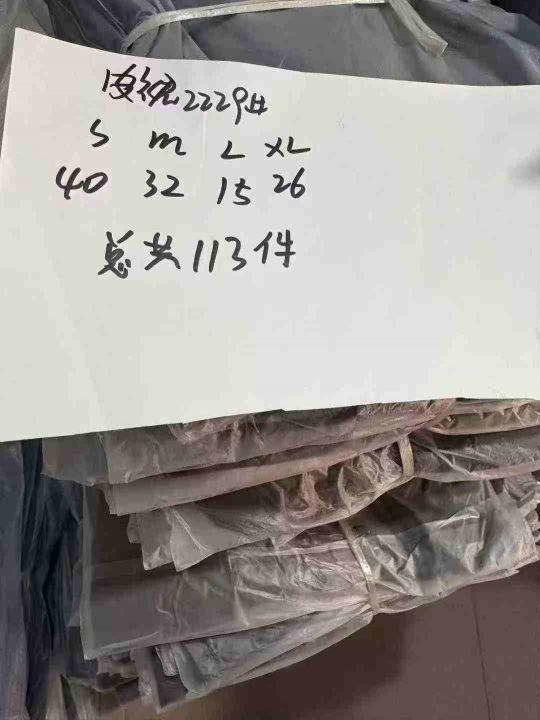 2229#
S M L XL
40 32 15 26
总共113件